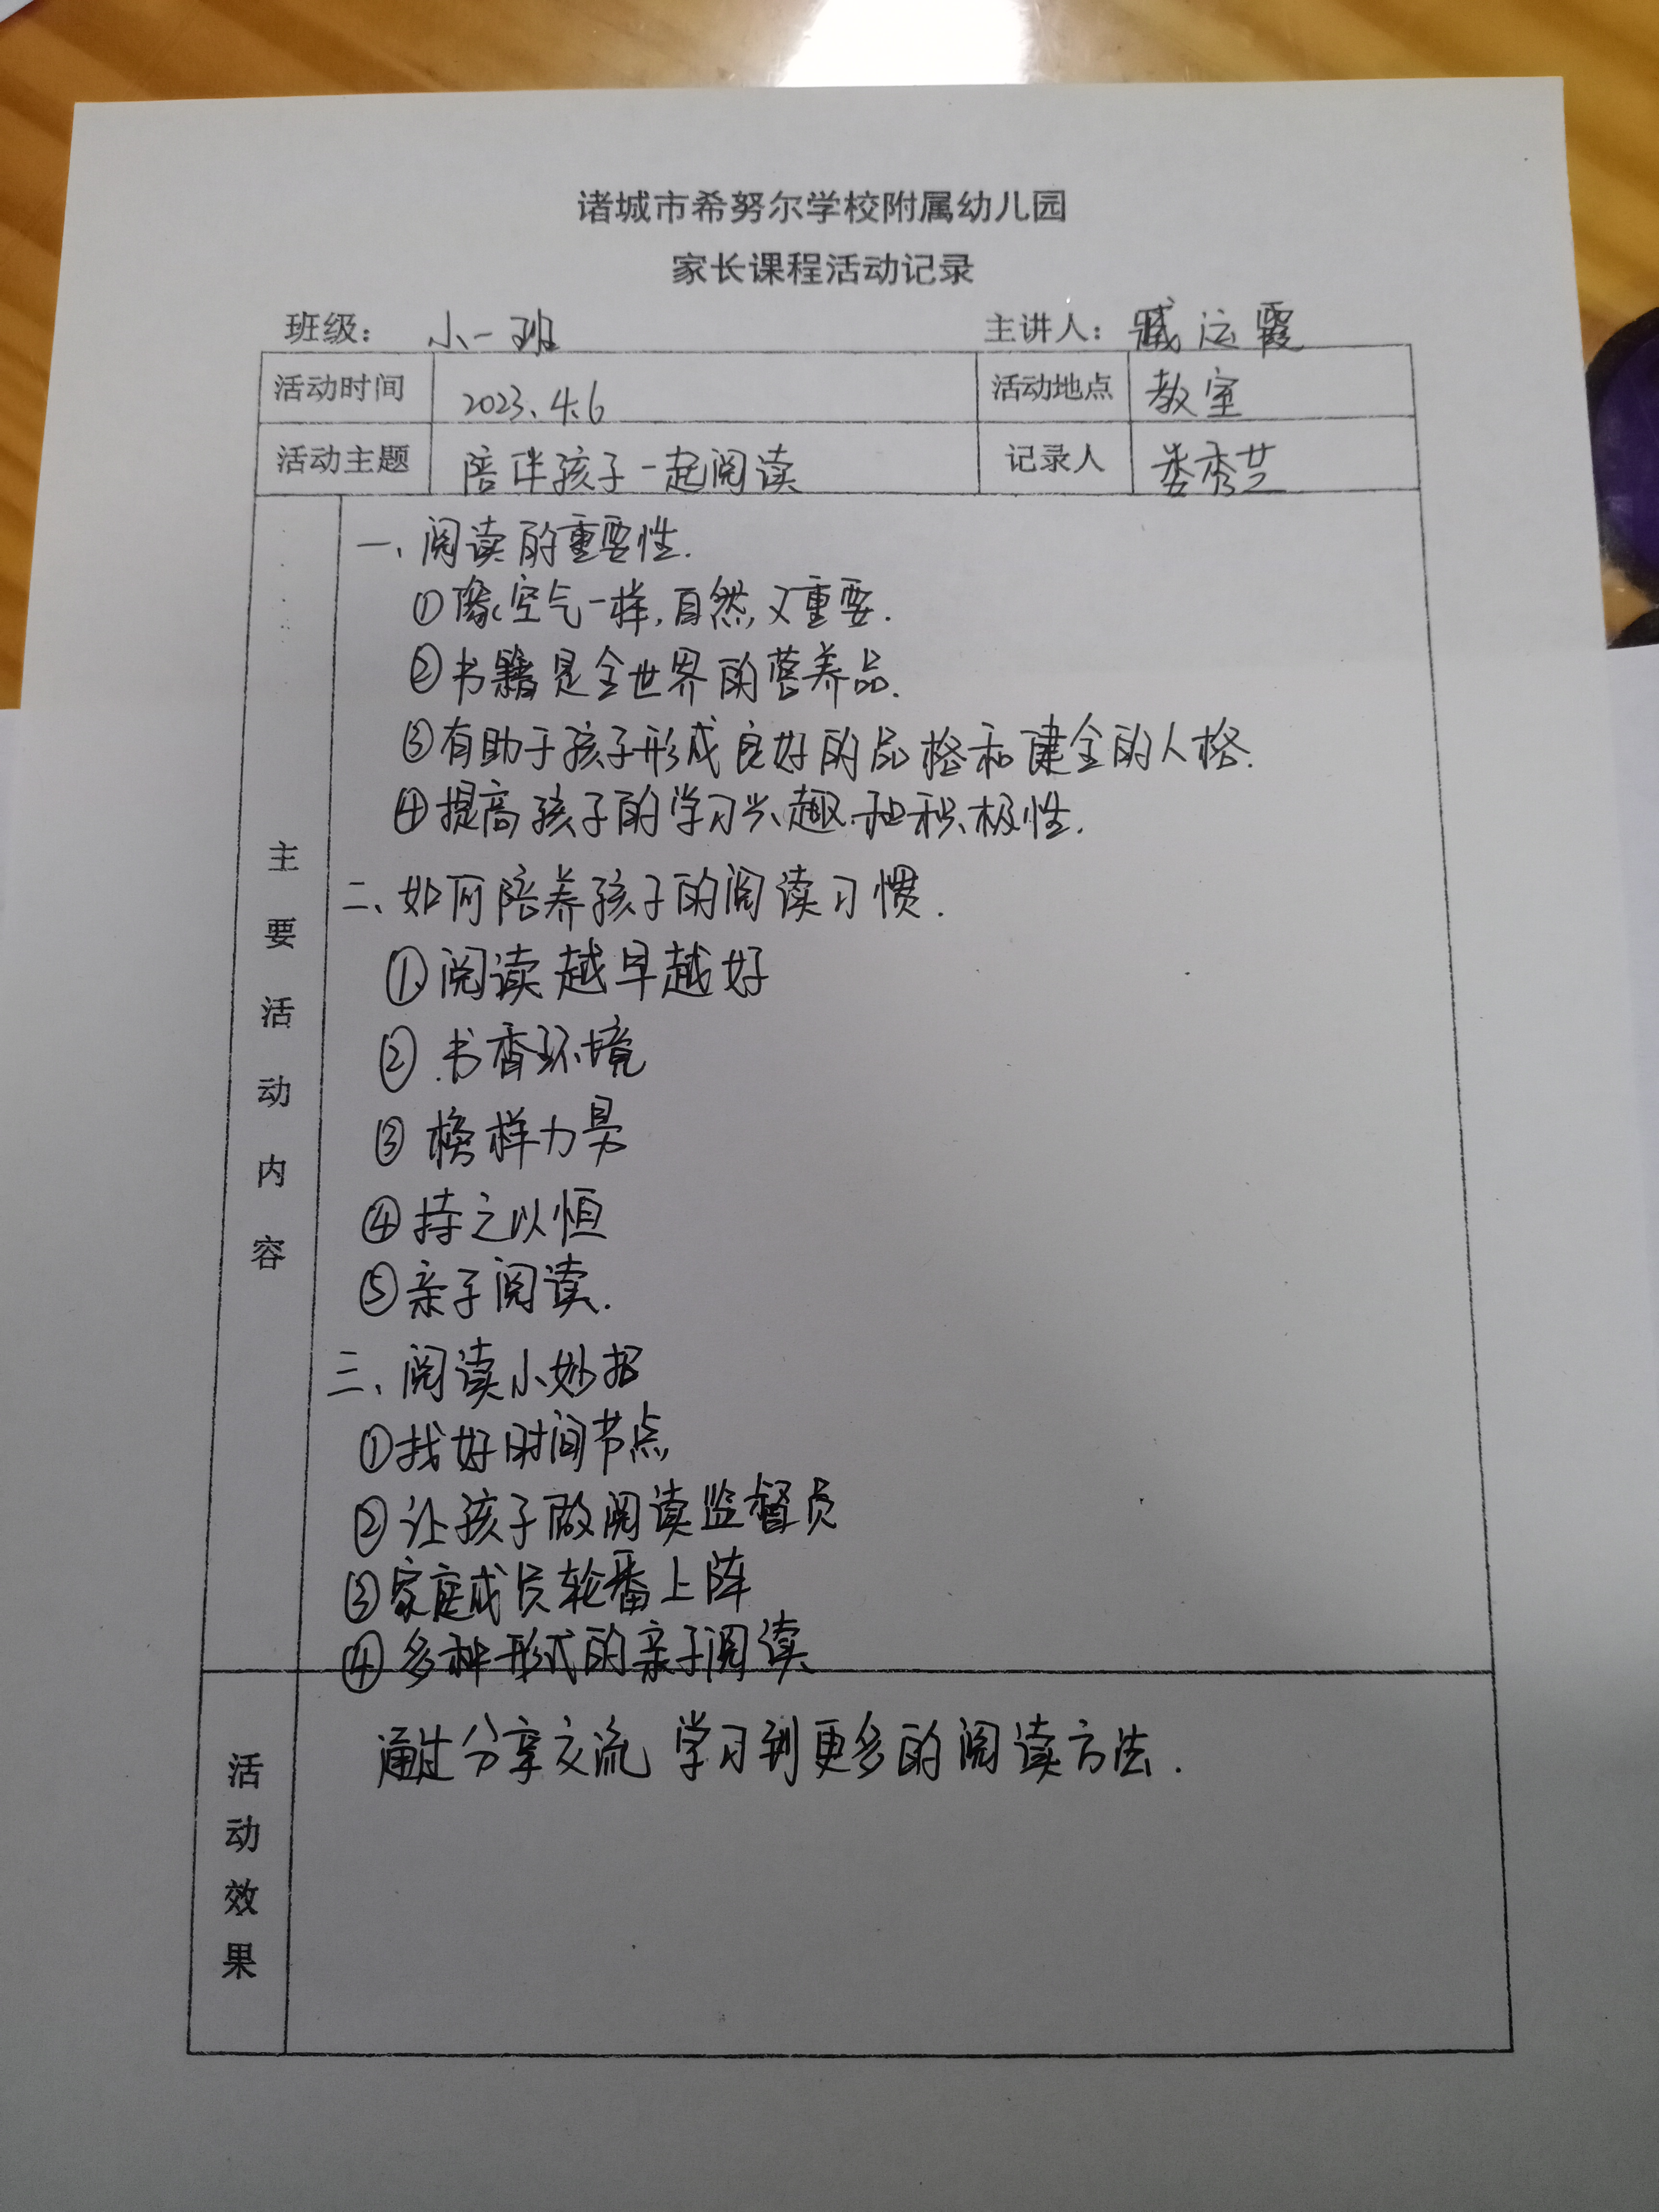 诸城市希努尔学校附属幼儿园
家长课程活动记录
班级： 小一班 主讲人：臧运霞
活动时间 2023.4.6 活动地点 教室
活动主题 陪伴孩子一起阅读 记录人 娄秀芝
主要活动内容
一、阅读的重要性.
①像空气一样,自然,又重要.
②书籍是全世界的营养品.
③有助于孩子形成良好的品格和建全的人格.
④提高孩子的学习兴趣和积极性.
二、如何陪养孩子的阅读习惯.
①阅读越早越好
②书香环境
③榜样力量
④持之以恒
⑤亲子阅读.
三、阅读小妙招
①找好时间节点
②让孩子做阅读监督员
③家庭成员轮番上阵
④多种形式的亲子阅读
活动效果
通过分享交流 学习到更多的阅读方法.